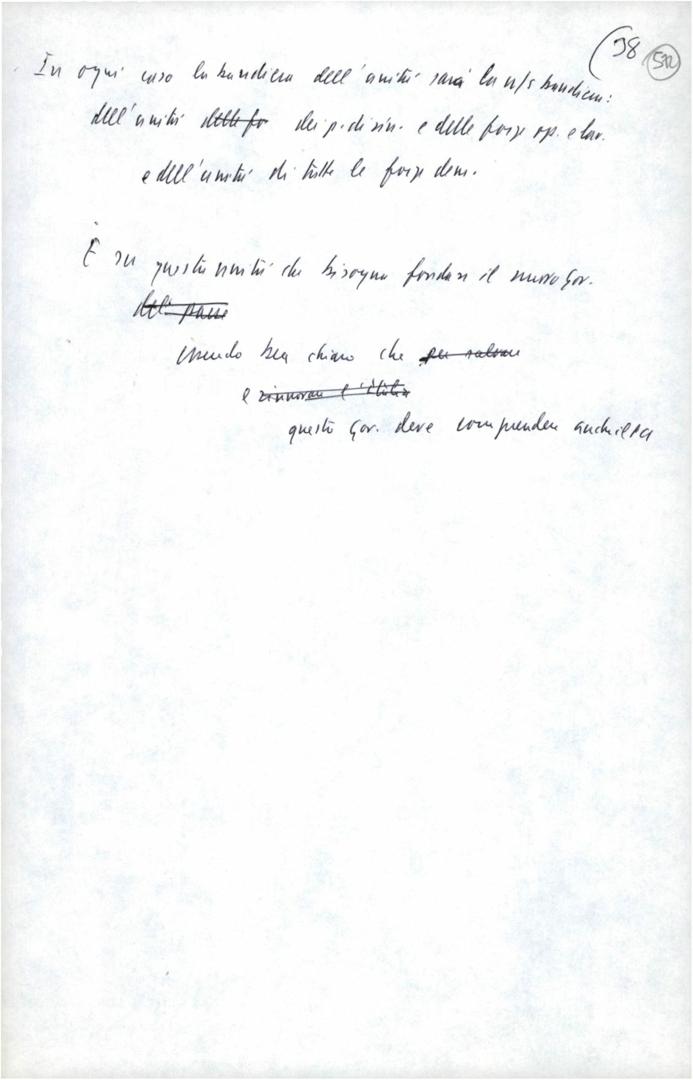 38 532
In ogni caso la bandiera dell'unità sarà la n/s bandiera:
dell'unità delle fo dei p. di sin. e delle forze op. e lav.
e dell'unità di tutte le forze dem.
È su questa unità che bisogna fondare il nuovo gov.
del paese
essendo ben chiaro che per salvare
e rinnovare l'Italia
questo gov. deve comprendere anche il PCI